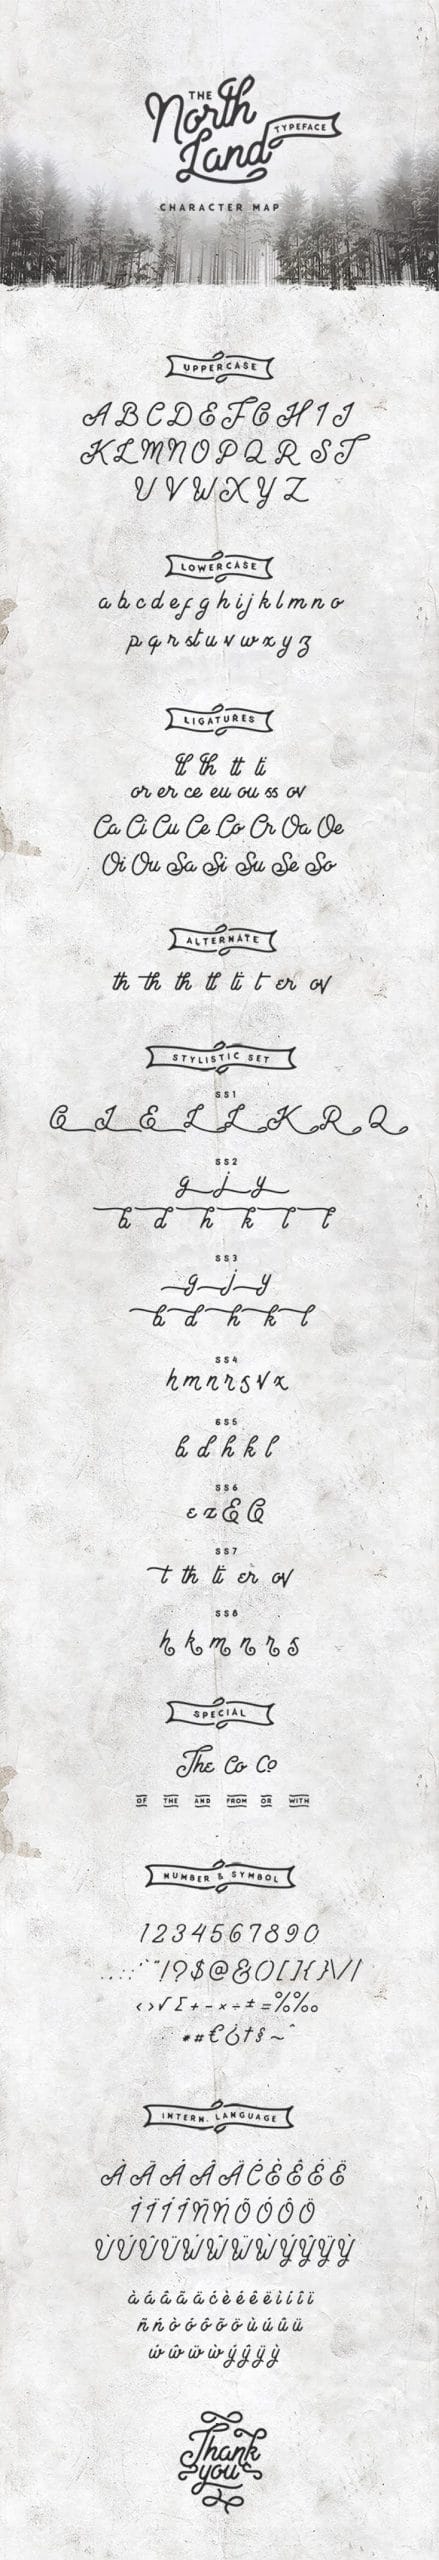 THE
North
Land
TYPEFACE
CHARACTER MAP
UPPERCASE
A B C D E F G H I J
K L M N O P Q R S T
U V W X Y Z
LOWERCASE
a b c d e f g h i j k l m n o
p q r s t u v w x y z
LIGATURES
tl th tt ti
or er ce eu ou ss ov
Ca Ci Cu Ce Co Cr Oa Oe
Oi Ou Sa Si Su Se So
ALTERNATE
th th th tl ti t er ov
STYLISTIC SET
SS1
G J E L L K R Q
SS2
g j y
b d h k l t
SS3
g j y
b d h k l
SS4
h m n r s v x
SS5
b d h k l
SS6
e z E G
SS7
t th ti er ov
SS8
h k m n r s
SPECIAL
The Co Co
OF THE AND FROM OR WITH
NUMBER & SYMBOL
1 2 3 4 5 6 7 8 9 0
. , : ; ' " ! ? $ @ & ( ) [ ] { } \ / |
‹ › √ Σ + - × ÷ ± = % ‰
* # € ¿ † § ~ ^
INTERN. LANGUAGE
À Ã Á Â Ä Ć È É Ê Ë
Ì Í Î Ï Ñ Ń Ò Ó Ô Ö
Ù Ú Û Ü Ẃ Ŵ Ẅ Ẁ Ý Ŷ Ÿ Ỳ
à á â ã ä ć è é ê ë ì í î ï
ñ ń ò ó ô õ ö ù ú û ü
ẃ ŵ ẅ ẁ ý ŷ ÿ ỳ
Thank
you